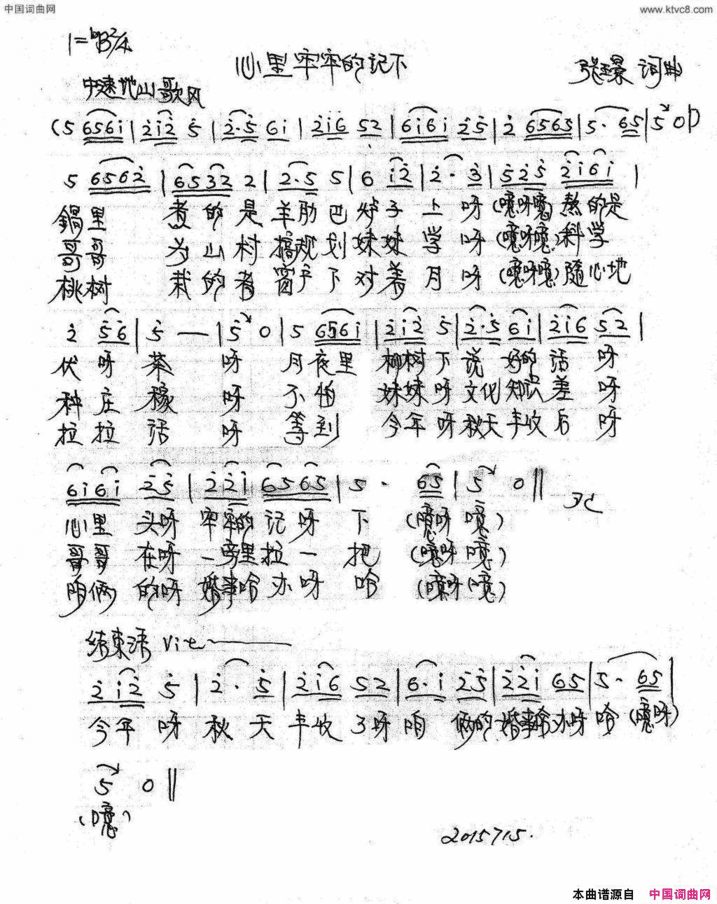 中国词曲网 www.ktvc8.com
1=♭B 2/4
心里牢牢的记下 词曲
中速地 山歌风
(5 656i | 2i2 5 | 2·5 6i | 2i6 52 | 6i6i 25 | 2 6565 | 5· 65 | 5 0 |)
5 6562 | 6532 2 | 2·5 5 | 6 i2 | 2· 3 | 525 2i6i |
锅里 煮的是羊肋巴 子上呀(噫呀噫)熬的是
哥哥 为山村搞规划妹妹学呀(噫呀噫)科学
桃树 栽的着窗户下对着月呀(噫呀噫)随心地
2 56 | 5 — | 5 0 | 5 656i | 2i2 5 | 2·5 6i | 2i6 52 |
伏呀茶 呀 月夜里 柳树下说好的话 呀
种庄稼 呀 不怕 妹妹呀文化知识差 呀
拉拉话 呀 等到 今年呀秋天丰收后 呀
6i6i 25 | 22i 6565 | 5· 65 | 5 0 ‖
心里 头呀 牢牢的记呀 下 (噫呀 噫)
哥哥 在呀 一旁里拉一 把 (噫呀 噫)
咱俩 的呀 婚事哈办呀 哈 (噫呀 噫)
结束语
2i2 5 | 2· 5 | 2i6 52 | 6·i 25 | 22i 65 | 5· 65 |
今年 呀 秋 天 丰收 了呀咱 俩的婚事哈办呀 哈 (噫呀)
5 0 ‖
(噫)
2015715.
本曲谱源自 中国词曲网